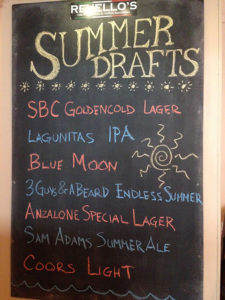 RENELLO'S
SUMMER
DRAFTS
SBC GOLDENCOLD LAGER
LAGUNITAS IPA
BLUE MOON
3 GUYS & A BEARD ENDLESS SUMMER
ANZALONE SPECIAL LAGER
SAM ADAMS SUMMER ALE
COORS LIGHT